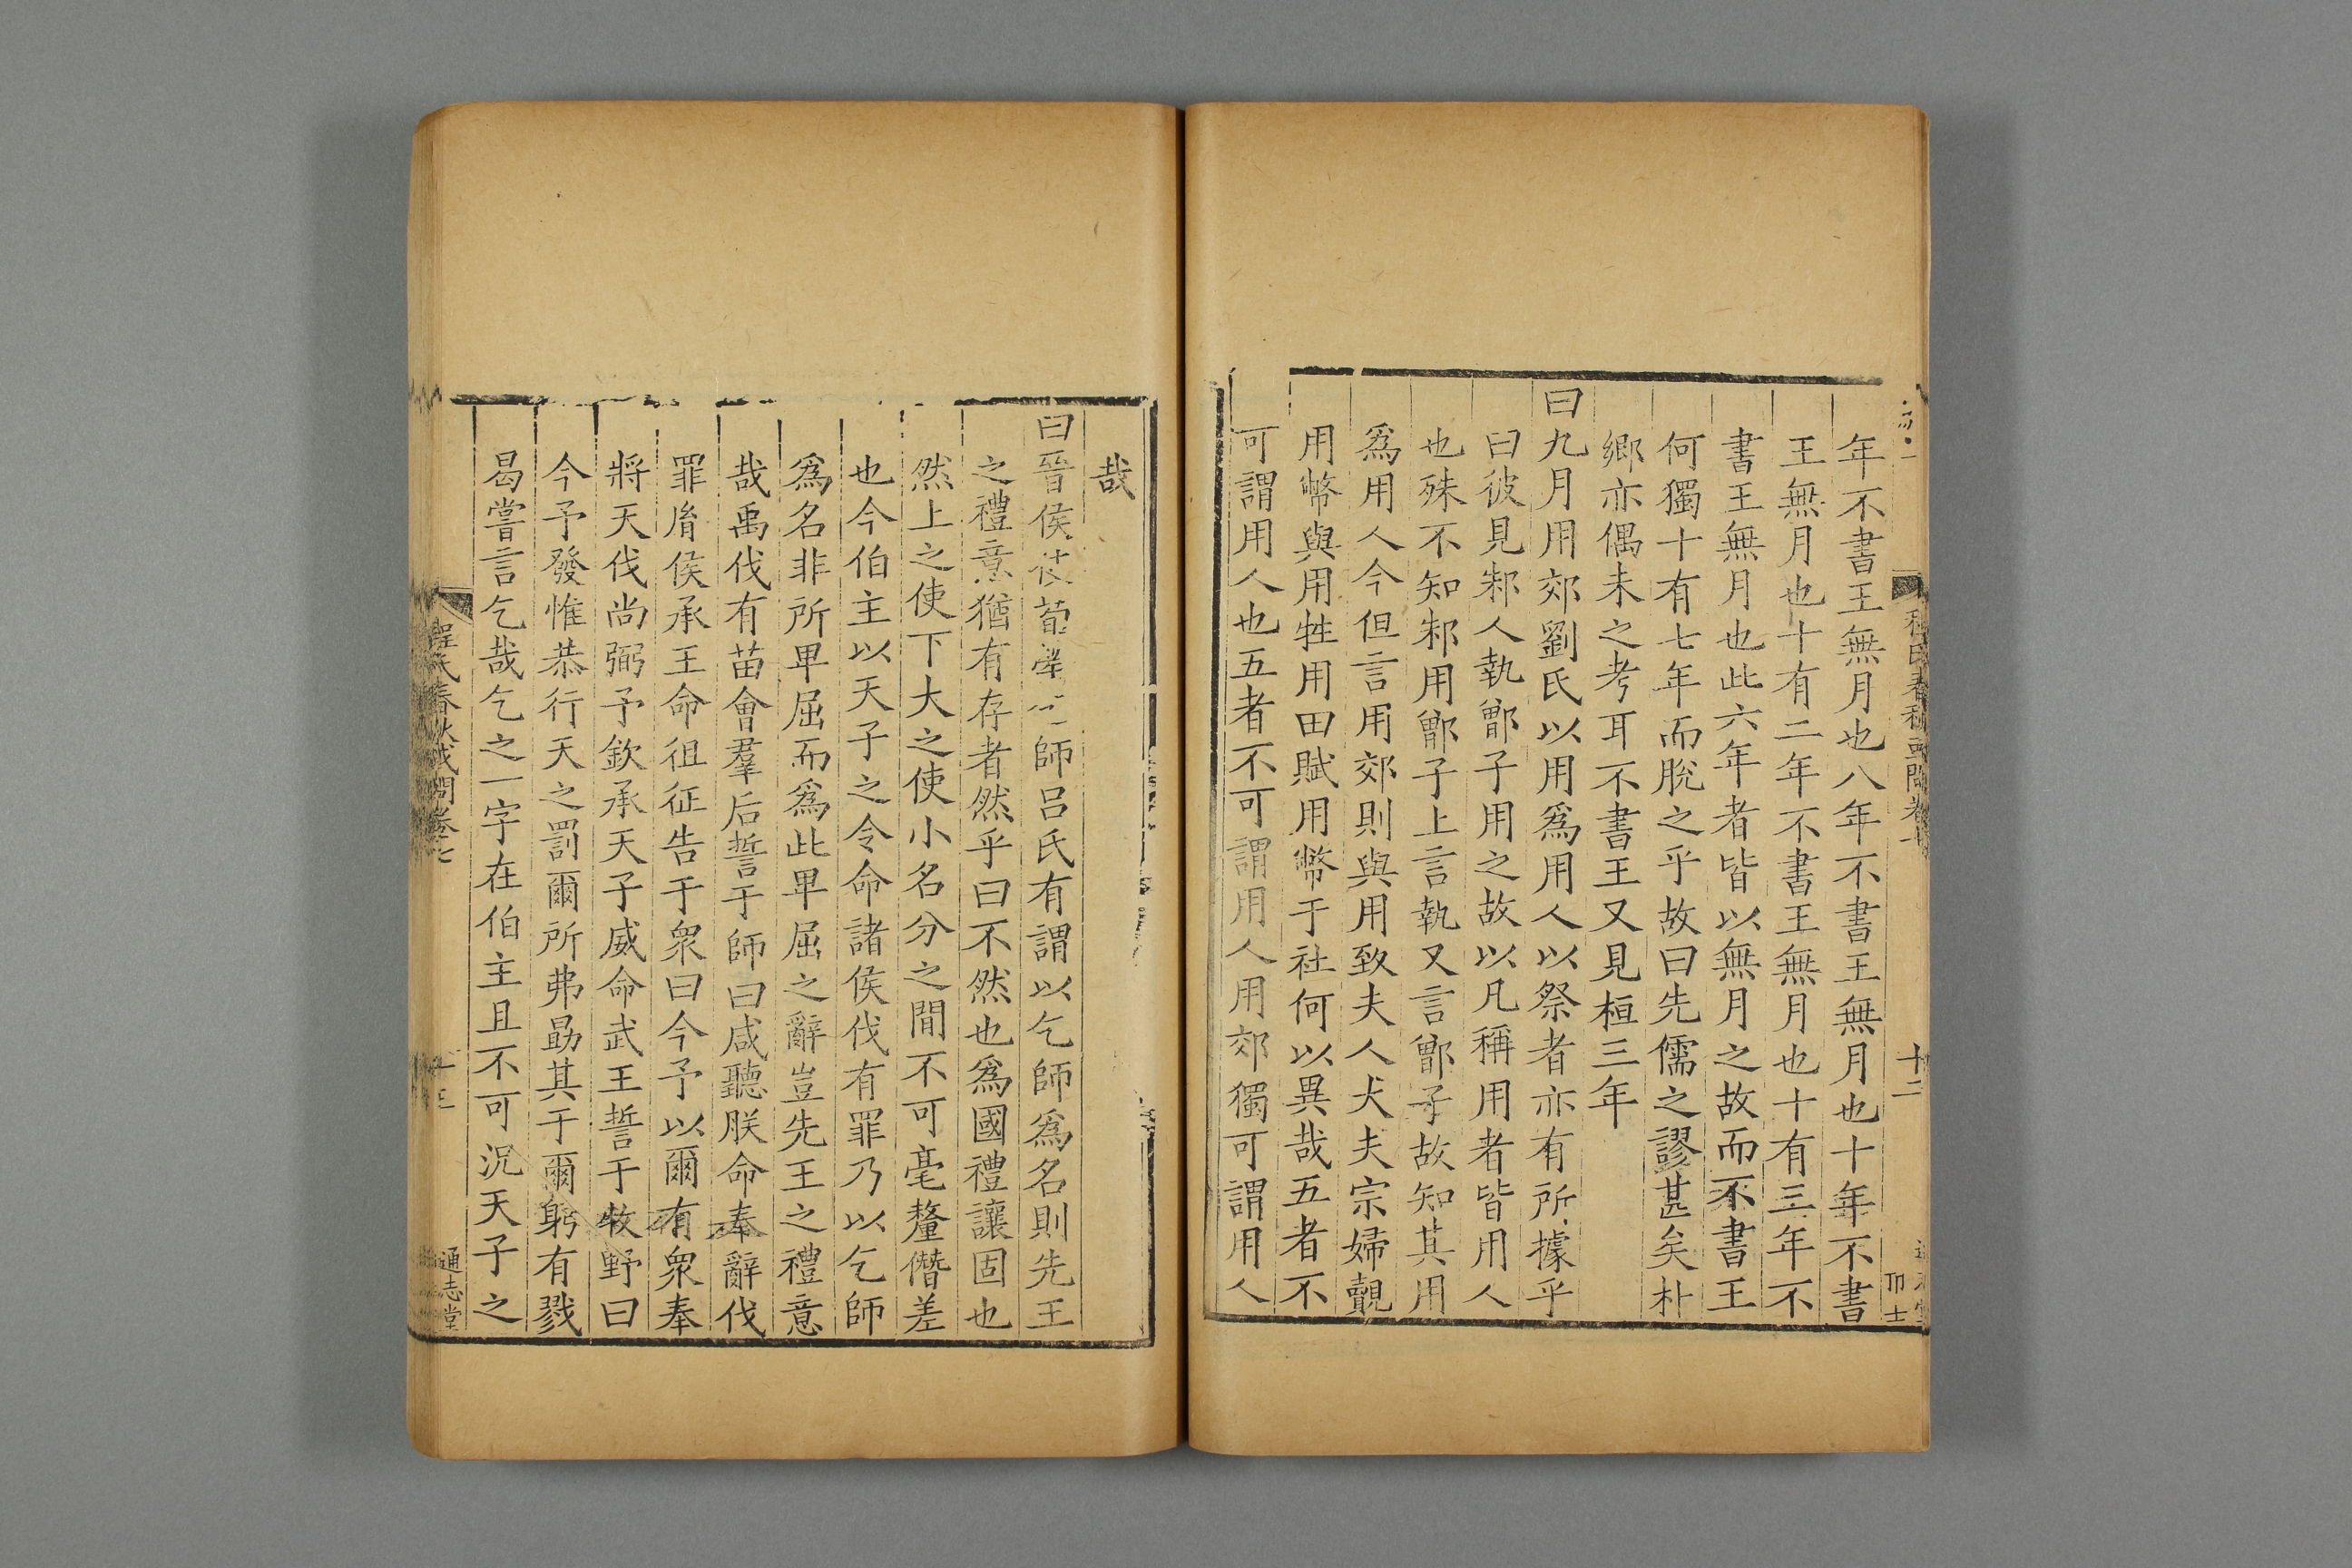 年不書王無月也八年不書王無月也十年不書
王無月也十有二年不書王無月也十有三年不
書王無月也此六年者皆以無月之故而不書王
何獨十有七年而脫之乎故曰先儒之謬甚矣朴
鄉亦偶未之考耳不書王又見桓三年
曰九月用郊劉氏以用爲用人以祭者亦有所據乎
曰彼見邾人執鄫子用之故以凡稱用者皆用人
也殊不知邾用鄫子上言執又言鄫子故知其用
爲用人今但言用郊則與用致夫人大夫宗婦覿
用幣與用牲用田賦用幣于社何以異哉五者不
可謂用人也五者不可謂用人用郊獨可謂用人
哉
曰晉侯使荀罃乞師呂氏有謂以乞師爲名則先王
之禮意猶有存者然乎曰不然也爲國禮讓固也
然上之使下大之使小名分之間不可毫釐僭差
也今伯主以天子之令命諸侯伐有罪乃以乞師
爲名非所卑屈而爲此卑屈之辭豈先王之禮意
哉禹伐有苗會羣后誓于師曰咸聽朕命奉辭伐
罪胤侯承王命徂征告于衆曰今予以爾有衆奉
將天伐尚弼予欽承天子威命武王誓于牧野曰
今予發惟恭行天之罰爾所弗勗其于爾躬有戮
曷嘗言乞哉乞之一字在伯主且不可況天子之
程氏春秋或問卷七
十二
通志堂